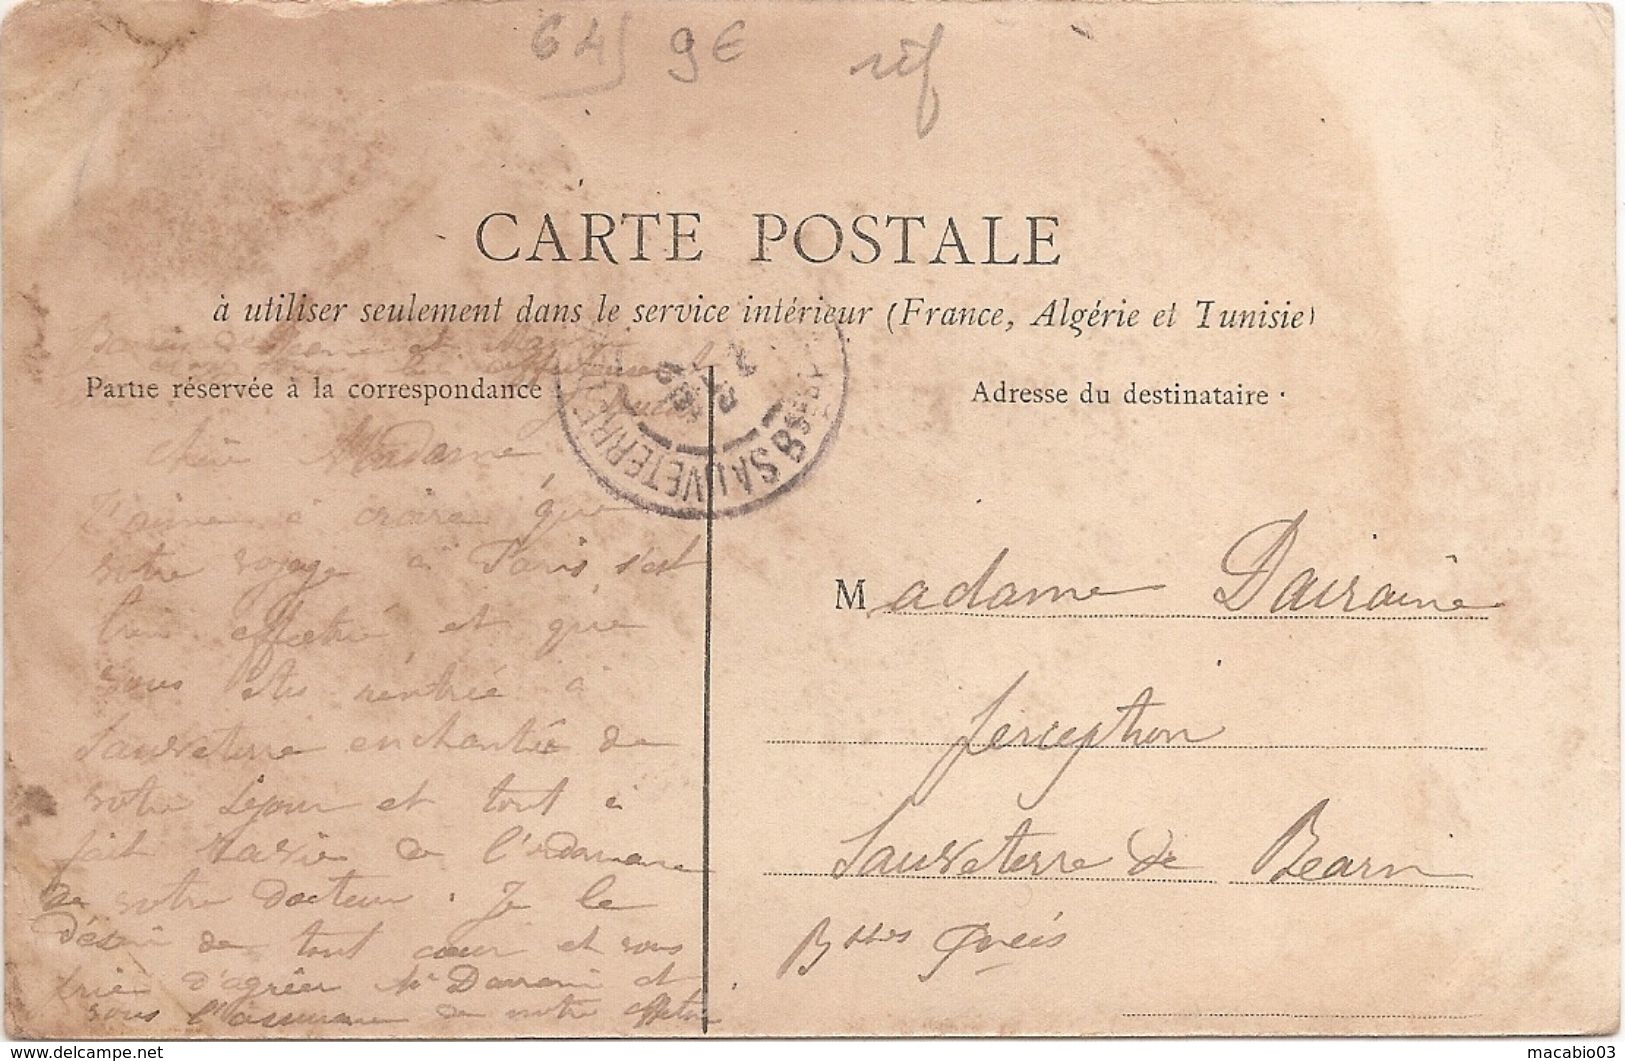 64) 9€ réf
CARTE POSTALE
à utiliser seulement dans le service intérieur (France, Algérie et Tunisie)
Partie réservée à la correspondance
Adresse du destinataire
SAUVETERRE
Chère Madame
J'aime à croire que
votre voyage à Paris s'est
bien effectué et que
vous êtes rentrée à
Sauveterre enchantée de
votre séjour et tout à
fait de
de votre docteur. Je le
désire de tout cœur et vous
prie d'agréer Mr et
vous l'assurance de notre
Madame Dairaine
perception
Sauveterre de Bearn
Bsses Pynées
macabio03